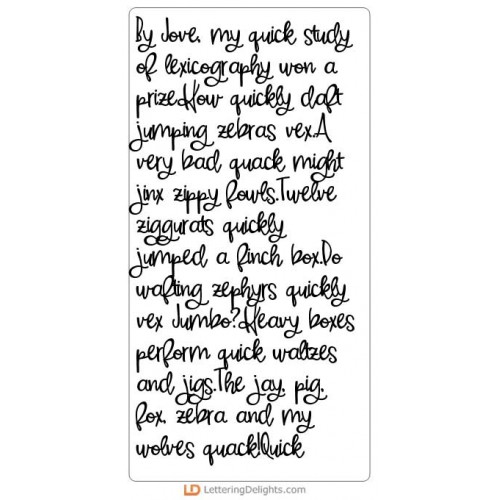 By Jove, my quick study
of lexicography won a
prize.How quickly daft
jumping zebras vex.A
very bad quack might
jinx zippy fowls.Twelve
ziggurats quickly
jumped a finch box.Do
wafting zephyrs quickly
vex Jumbo?Heavy boxes
perform quick waltzes
and jigs.The jay, pig,
fox, zebra and my
wolves quack!Quick
LD LetteringDelights.com